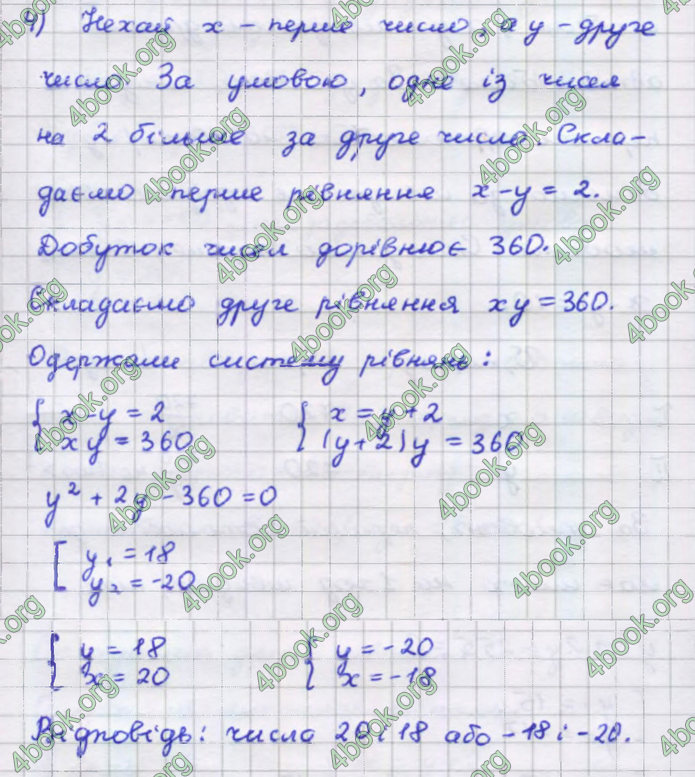 4) Нехай x – перше число, а y – друге
число. За умовою, одне із чисел
на 2 більше за друге число. Скла-
даємо перше рівняння x – y = 2.
Добуток чисел дорівнює 360.
Складаємо друге рівняння xy = 360.
Одержали систему рівнянь:
{ x – y = 2 { x = y + 2
{ xy = 360 { (y + 2)y = 360
y² + 2y – 360 = 0
[ y₁ = 18
[ y₂ = -20
{ y = 18 { y = -20
{ x = 20 { x = -18
Відповідь: числа 20 і 18 або -18 і -20.
4book.org